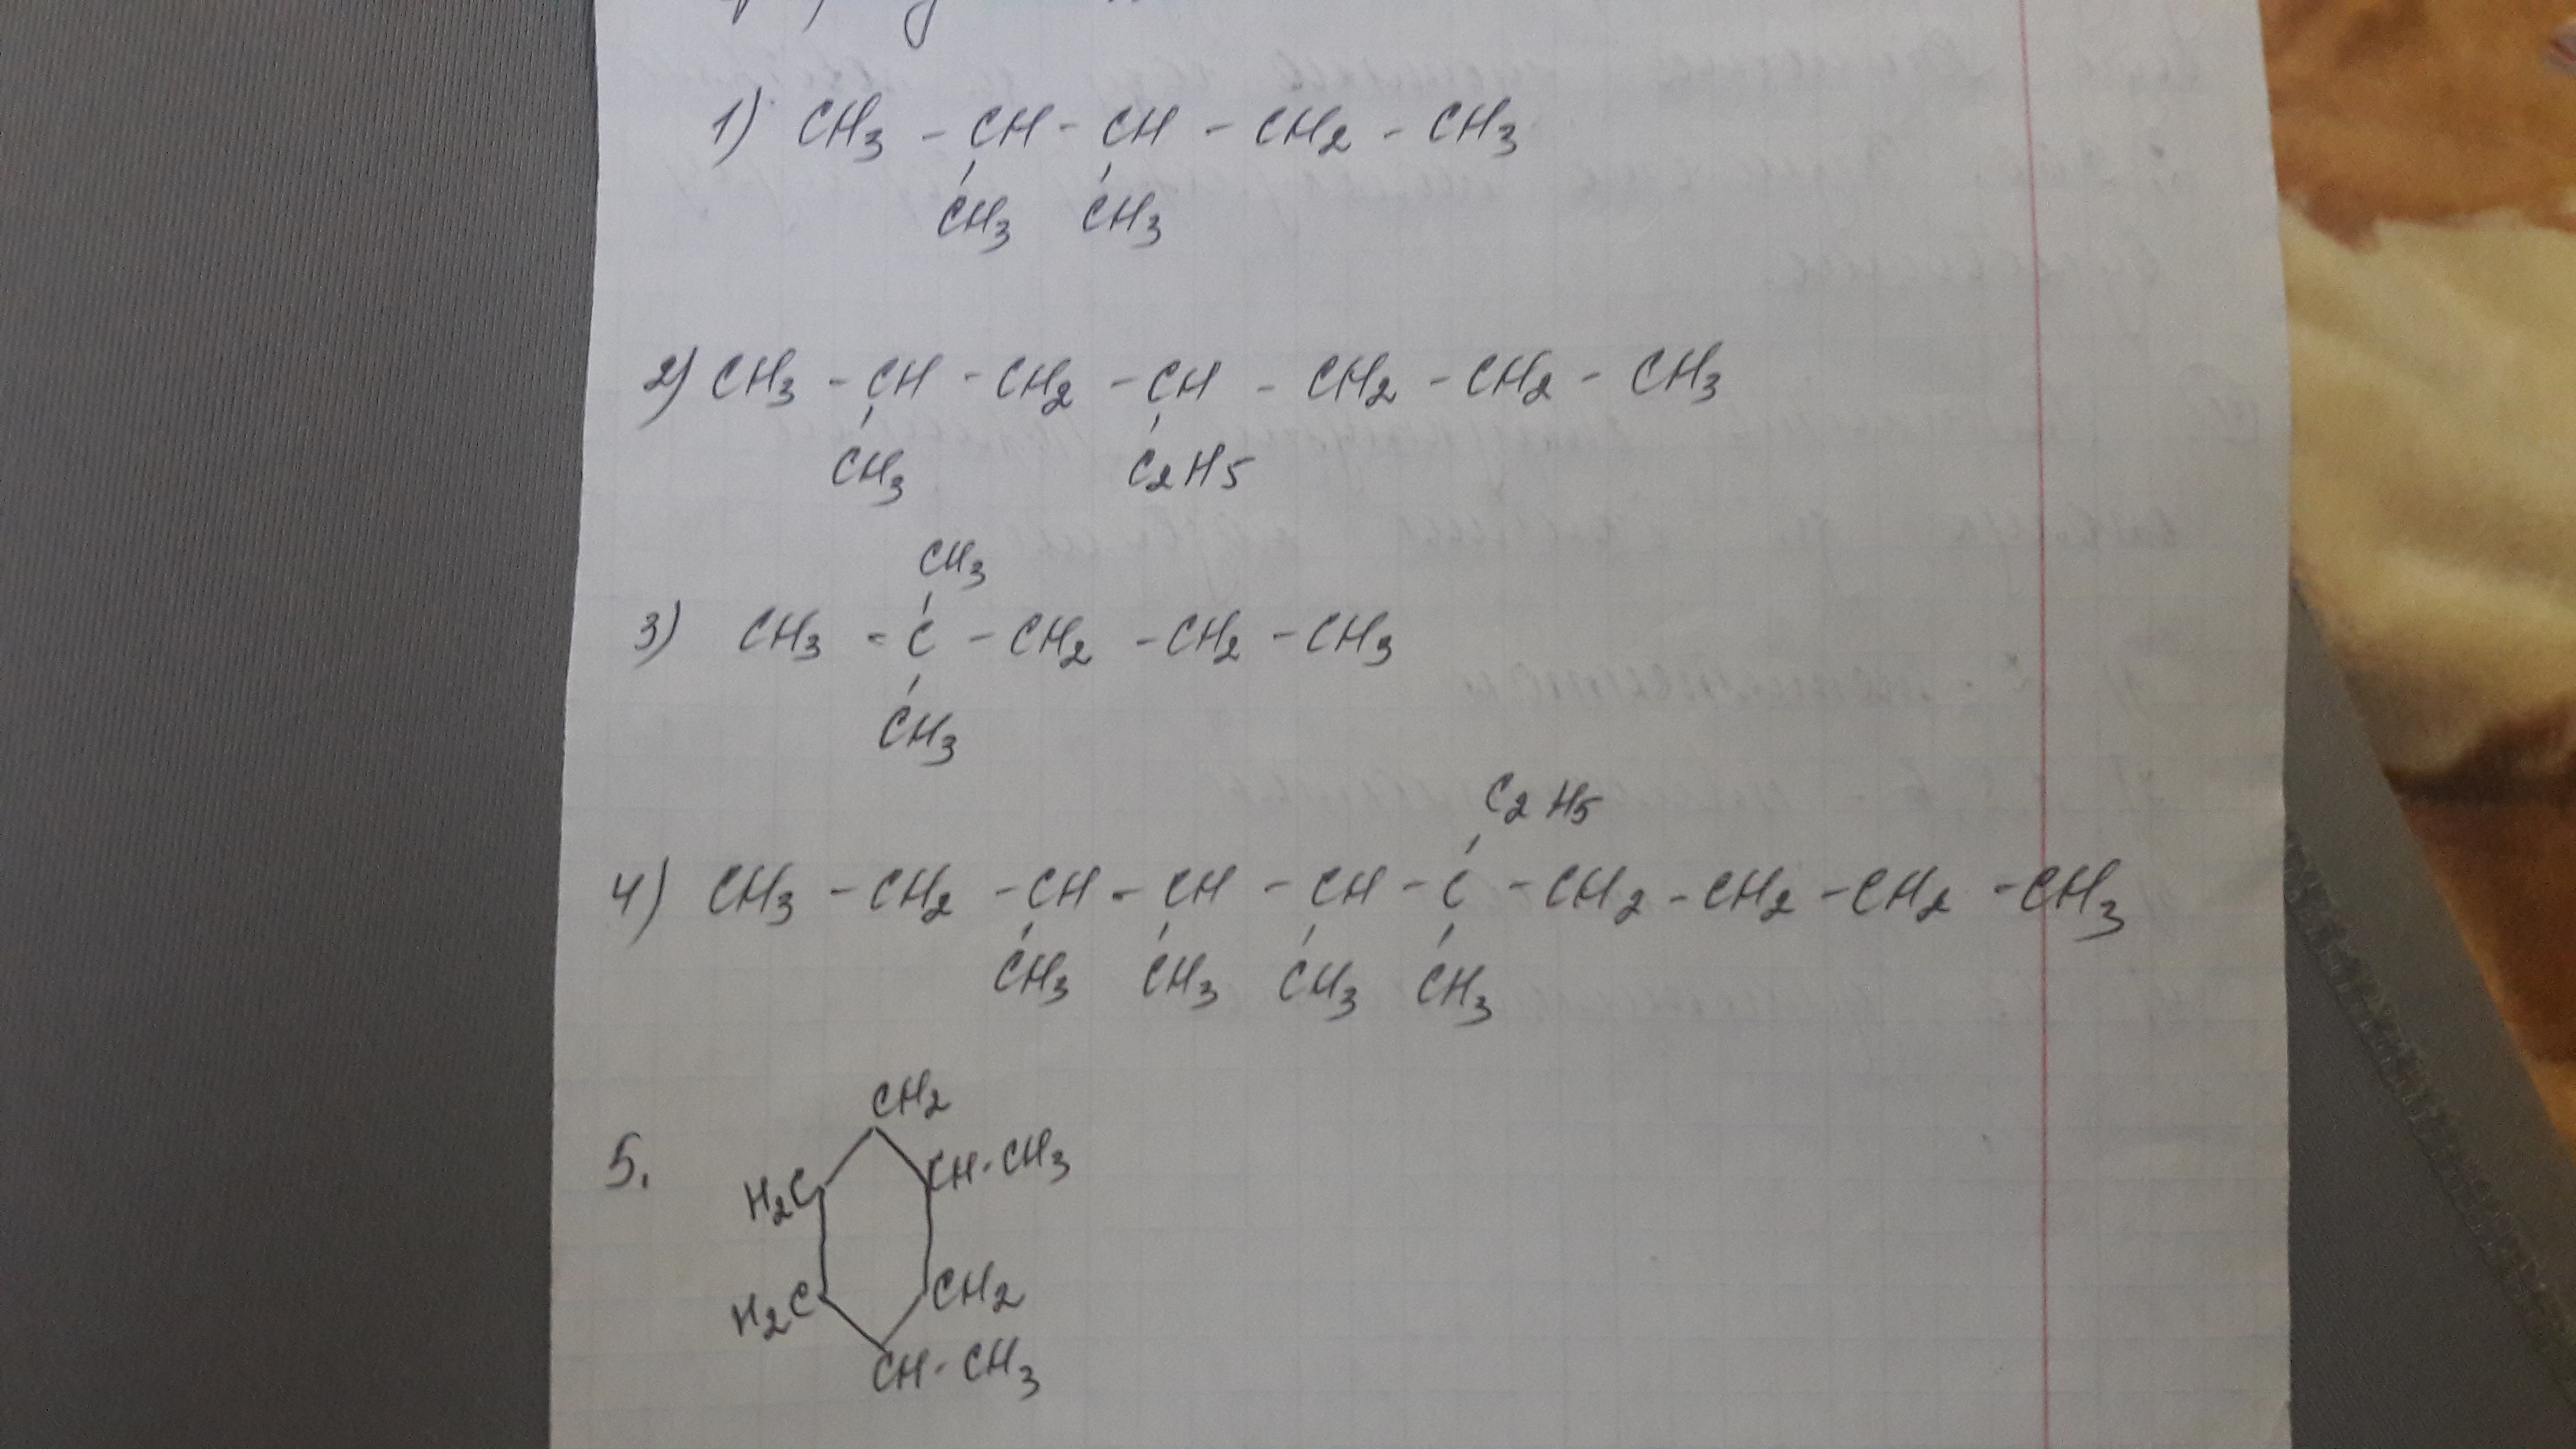 1) CH3 - CH - CH - CH2 - CH3
CH3 CH3
2) CH3 - CH - CH2 - CH - CH2 - CH2 - CH3
CH3 C2H5
CH3
3) CH3 - C - CH2 - CH2 - CH3
CH3
C2H5
4) CH3 - CH2 - CH - CH - CH - C - CH2 - CH2 - CH2 - CH3
CH3 CH3 CH3 CH3
CH2
5. H2C CH-CH3
H2C CH2
CH-CH3